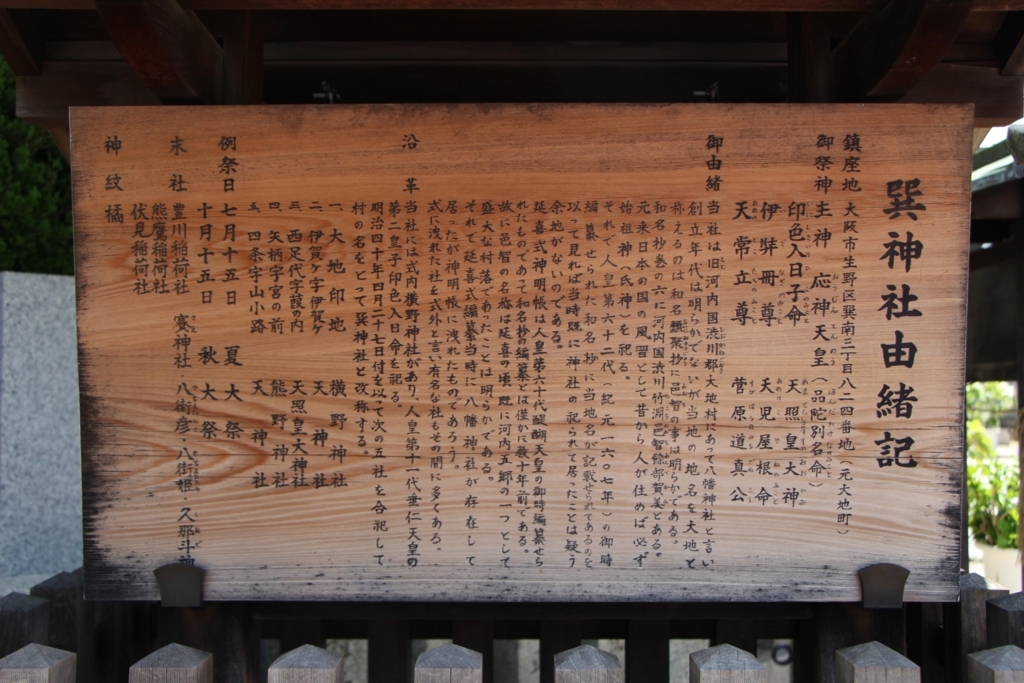 巽神社由緒記
鎮座地 大阪市生野区巽南三丁目八ー二四番地(元大地町)
御祭神 主神 応神天皇(品陀別名命)
印色入日子命 天照皇大神
伊弉冊尊 天児屋根命
天常立尊 菅原道真公
御由緒
当社は旧河内国渋川郡大地村にあって八幡神社と言い
創立年代は詳かでないが当地の地名を大地と
称えるのは和名類聚抄に邑智の事は明らかである。
和名抄巻の六に河内国渋川竹渕邑智餘部賀美とある。
元来日本の国の風習として昔から人が住めば必ず
始祖神(氏神)を祀る。
それで人皇第六十二代(紀元一六〇七年)の御時
編纂せられた和名抄に当地名が記載せられてあるのを
以って見れば当時既に神社の祀られて居ったことは疑う
余地がないのである。
延喜式神明帳は人皇第六十代醍醐天皇の御時編纂せら
れたものであって和名抄の編纂とは僅かに数十年前である。
故に邑智の名称は延喜の頃既に河内五郷の一つとして
盛大な村落であったことは明らかである。
それで延喜式編纂当時に八幡神社が存在して
居たが神明帳に洩れたものであろう。
式に洩れた社を式外と言い有名な社もその間に多くある。
沿革
当社には式内横野神社があり、人皇第十一代垂仁天皇の
第二皇子印色入日命を祀る。
明治四十年四月二十七日付を以て次の五社を合祀して
村の名をとって巽神社と改称する。
一、大地印地 横野神社
二、伊賀ヶ字伊賀ヶ 天神社
三、西足代字葭の内 天照皇大神社
四、矢柄字宮の前 熊野神社
五、四条字山小路 天神社
例祭日 七月十五日 夏大祭
十月十五日 秋大祭
末社 豊川稲荷社 賽神社 八街彦・八街姫・久那斗神
熊鷹稲荷社
伏見稲荷社
神紋 橘